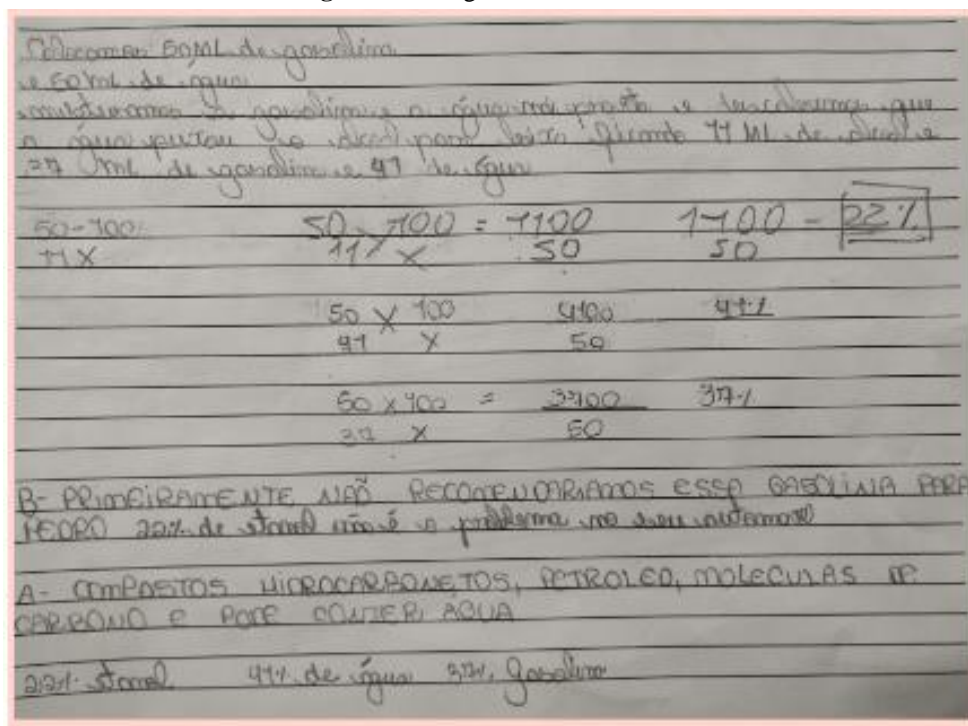 Colocamos 50ML de gasolina
e 50 ml de água
misturamos a gasolina e a água na proveta e descobrimos que
a água puxou o álcool para baixo ficando 11 ML de álcool e
37 ml de gasolina e 41 de água
50-100 50 100 = 1100 1100 - 22%
11 X 11 X 50 50
50 X 100 4100 41%
41 X 50
50 x 100 = 3700 37%
37 X 50
B- PRIMEIRAMENTE NAÕ RECOMENDARIAMOS ESSA GASOLINA PARA
PEDRO 22% de etanol não é o problema no seu
A- COMPOSTOS HIDROCARBONETOS, PETROLEO, MOLECULAS DE
CARBONO E PODE CONTER AGUA
22% etanol 41% de água 37% Gasolina